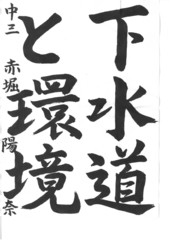 下水道
と環境
中三 赤堀 陽奈